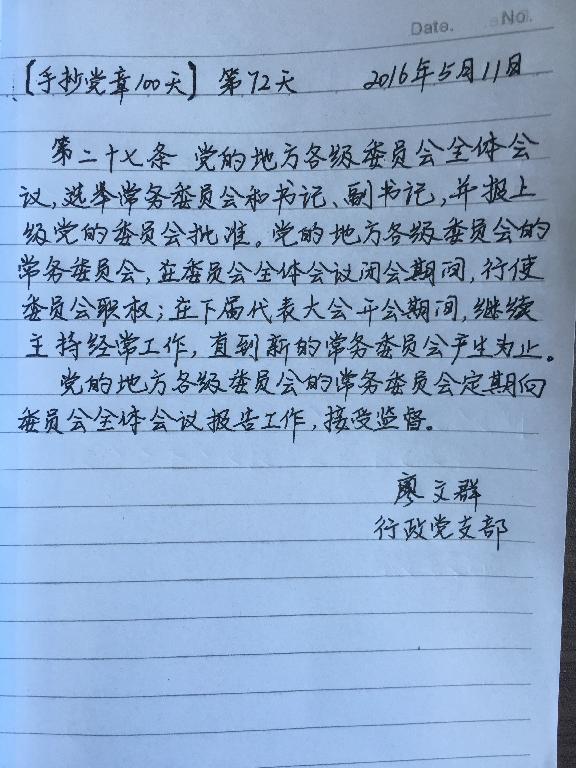 Date. No.
【手抄党章100天】 第72天 2016年5月11日
第二十七条 党的地方各级委员会全体会
议,选举常务委员会和书记、副书记,并报上
级党的委员会批准。党的地方各级委员会的
常务委员会,在委员会全体会议闭会期间,行使
委员会职权;在下届代表大会开会期间,继续
主持经常工作,直到新的常务委员会产生为止。
党的地方各级委员会的常务委员会定期向
委员会全体会议报告工作,接受监督。
廖文群
行政党支部